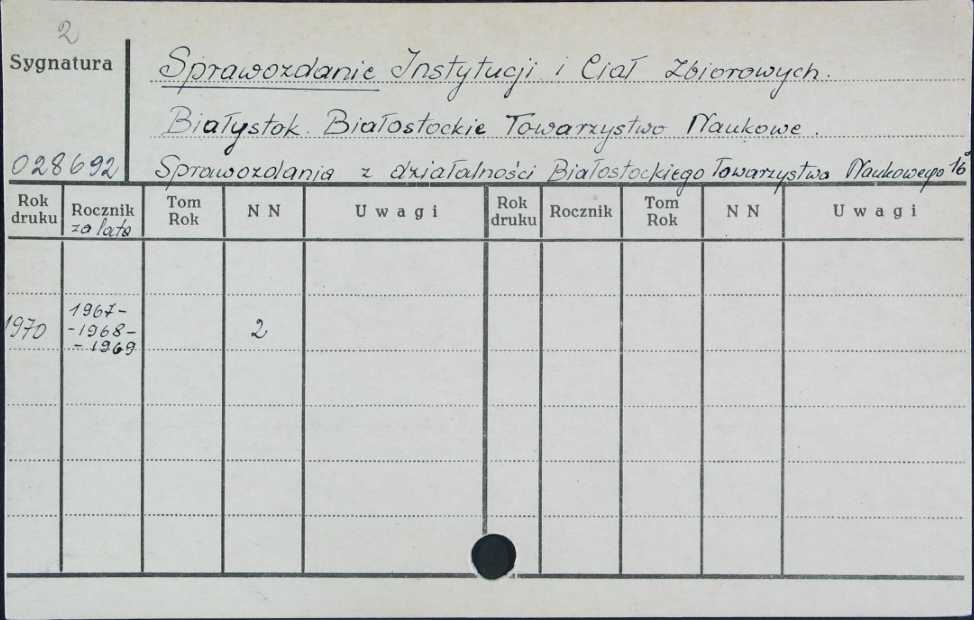 2
Sygnatura
Sprawozdanie Instytucji i Ciał Zbiorowych.
Białystok. Białostockie Towarzystwo Naukowe.
028692
Sprawozdania z działalności Białostockiego Towarzystwa Naukowego 16°
Rok druku Rocznik za lata Tom Rok N N Uwagi Rok druku Rocznik Tom Rok N N Uwagi
1970 1967- -1968- - 1969 2